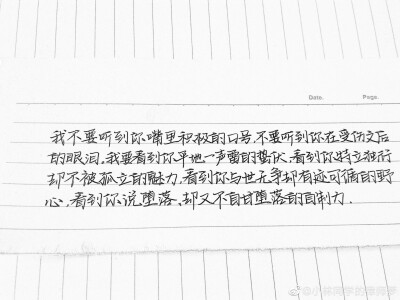 Date.
Page.
我不要听到你嘴里积极的口号,不要听到你在受伤之后
的眼泪,我要看到你平地一声雷的蛰伏,看到你特立独行
却不被孤立的魅力,看到你与世无争却有迹可循的野
心,看到你说堕落,却又不自甘堕落的自制力.